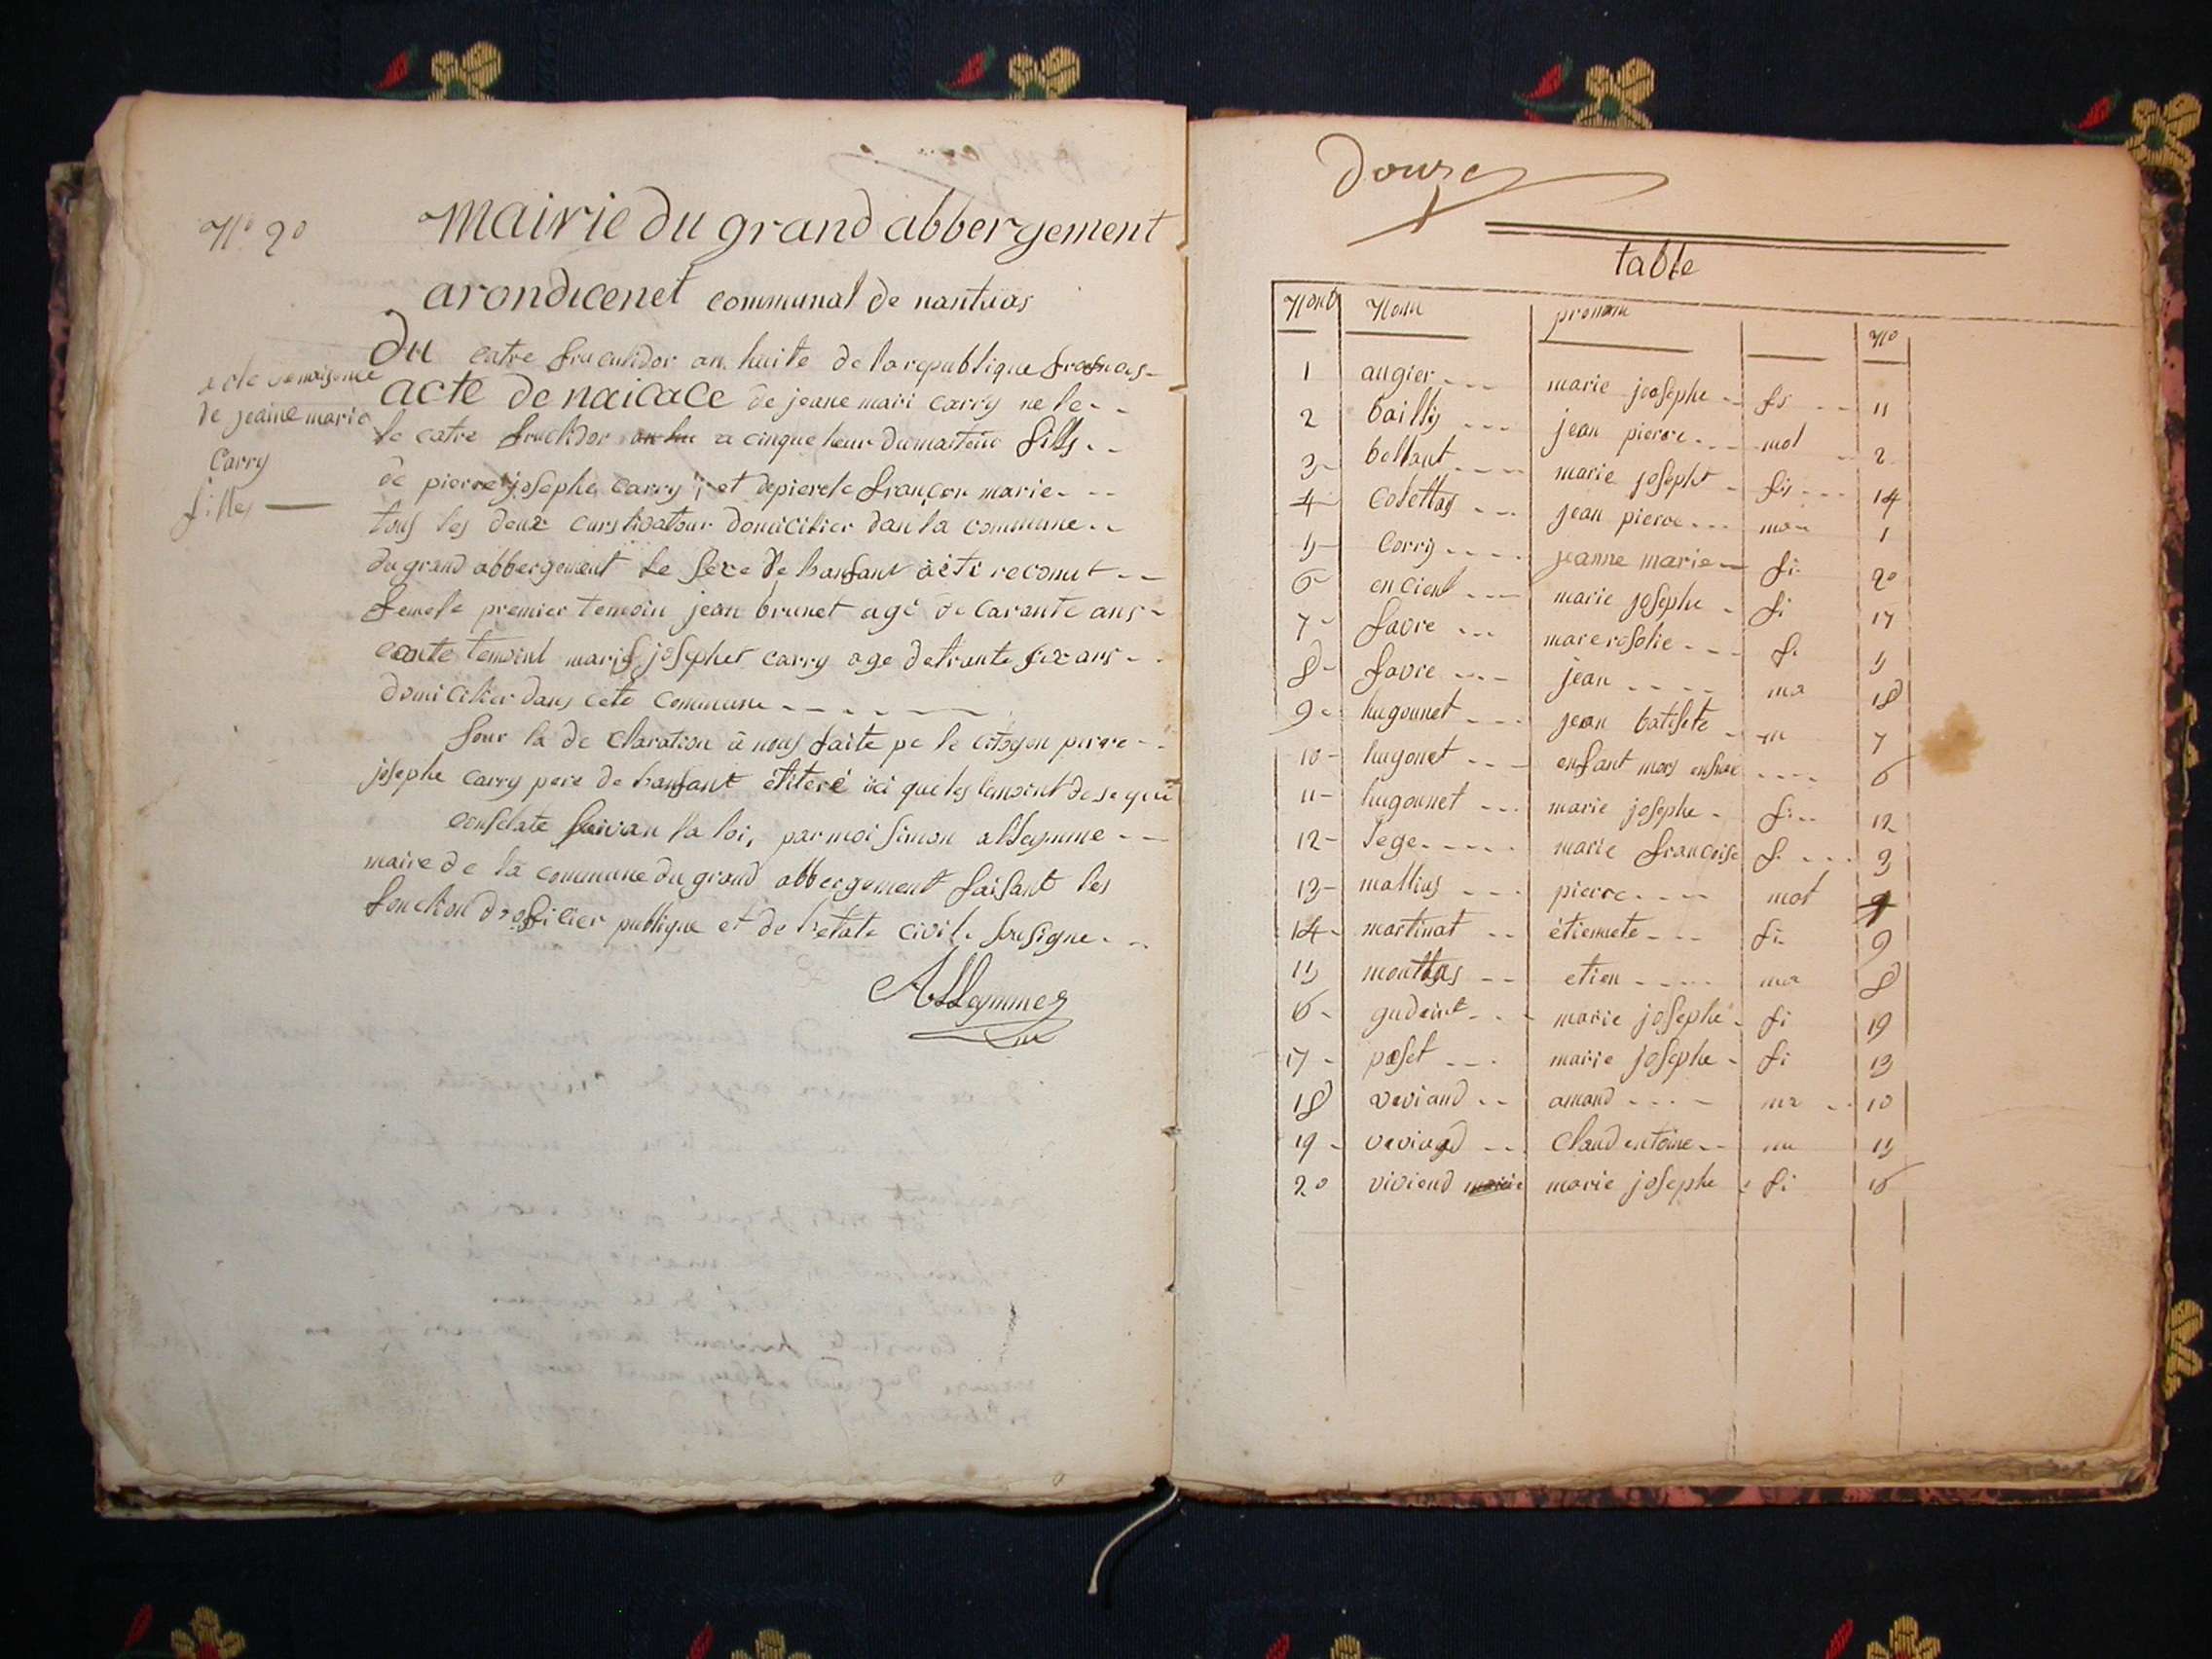 N° 20
Mairie du grand abbergement
arondicenet communal de nantuas
acte de naisance
de jeanne marie
Carry
filles
Du catre frucutidor an huite de la republique
acte de naicace de jeane mari carry ne le
le catre fructidor a cinque heur du fills
de pierre josephe carry et françon marie
tous les deux domicilier dan la commune
du grand abbergement le sexe de hanfant a èté reconut
femele premier temoin jean brunet agé de carante ans
temoint josephet carry age de trante six ans
domicilier dans cete commune
sour la de claration à nous faite pe le citoyen pierre
josephe carry pere de hanfant
constate suivan la loi, par moi simon allegmme
maire de la commune du grand abbergement faisant les
fonction publique et de letate civil sousigne
Allegmmes
Douze
table
Nom prenom N°
1 augier marie joosephe fi 11
2 bailly jean pierre mal 2
3 bellant marie josepht fi 14
4 cobettas jean pierre ma 1
5 Corry jeanne marie fi 20
6 encient marie josephe fi 17
7 favre mare rosolie fi 5
8 favre jean ma 18
9 hugounet jean batiste m 7
10 hugonet enfant mors 6
11 hugounet marie josephe fi 12
12 Tege marie francoise f 3
13 mattius pierre mal 4
14 martinat étiennete fi 9
15 etien ma 8
16 gudeint marie josephe fi 19
17 poset marie josephe fi 13
18 viviand amand ma 10
19 viviand Claud entoine ma 15
20 viviend marie josephe fi 16